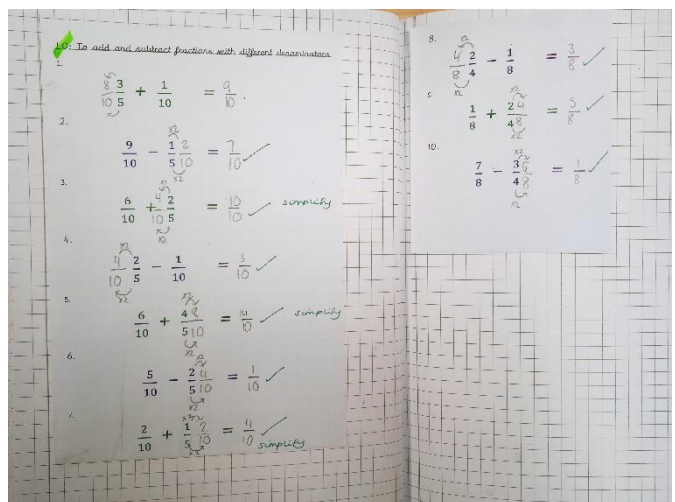 LO: To add and subtract fractions with different denominators
1.
8/10 3/5 + 1/10 = 9/10 .
2.
×2
9/10 - 1/5 2/10 = 7/10 ✓
×2
3.
6/10 + 4/10 2/5 = 10/10 ✓ simplify
×2
4.
×2
4/10 2/5 - 1/10 = 3/10 ✓
×2
5.
6/10 + 4/5 8/10 = 14/10 ✓ simplify
×2
6.
×2
5/10 - 2/5 4/10 = 1/10 ✓
×2
7.
2/10 + 1/5 2/10 = 4/10 ✓
simplify
8.
×2
4/8 2/4 - 1/8 = 3/8 ✓
×2
9.
×2
1/8 + 2/4 4/8 = 5/8 ✓
×2
10.
×2
7/8 - 3/4 = 1/8 ✓
×2